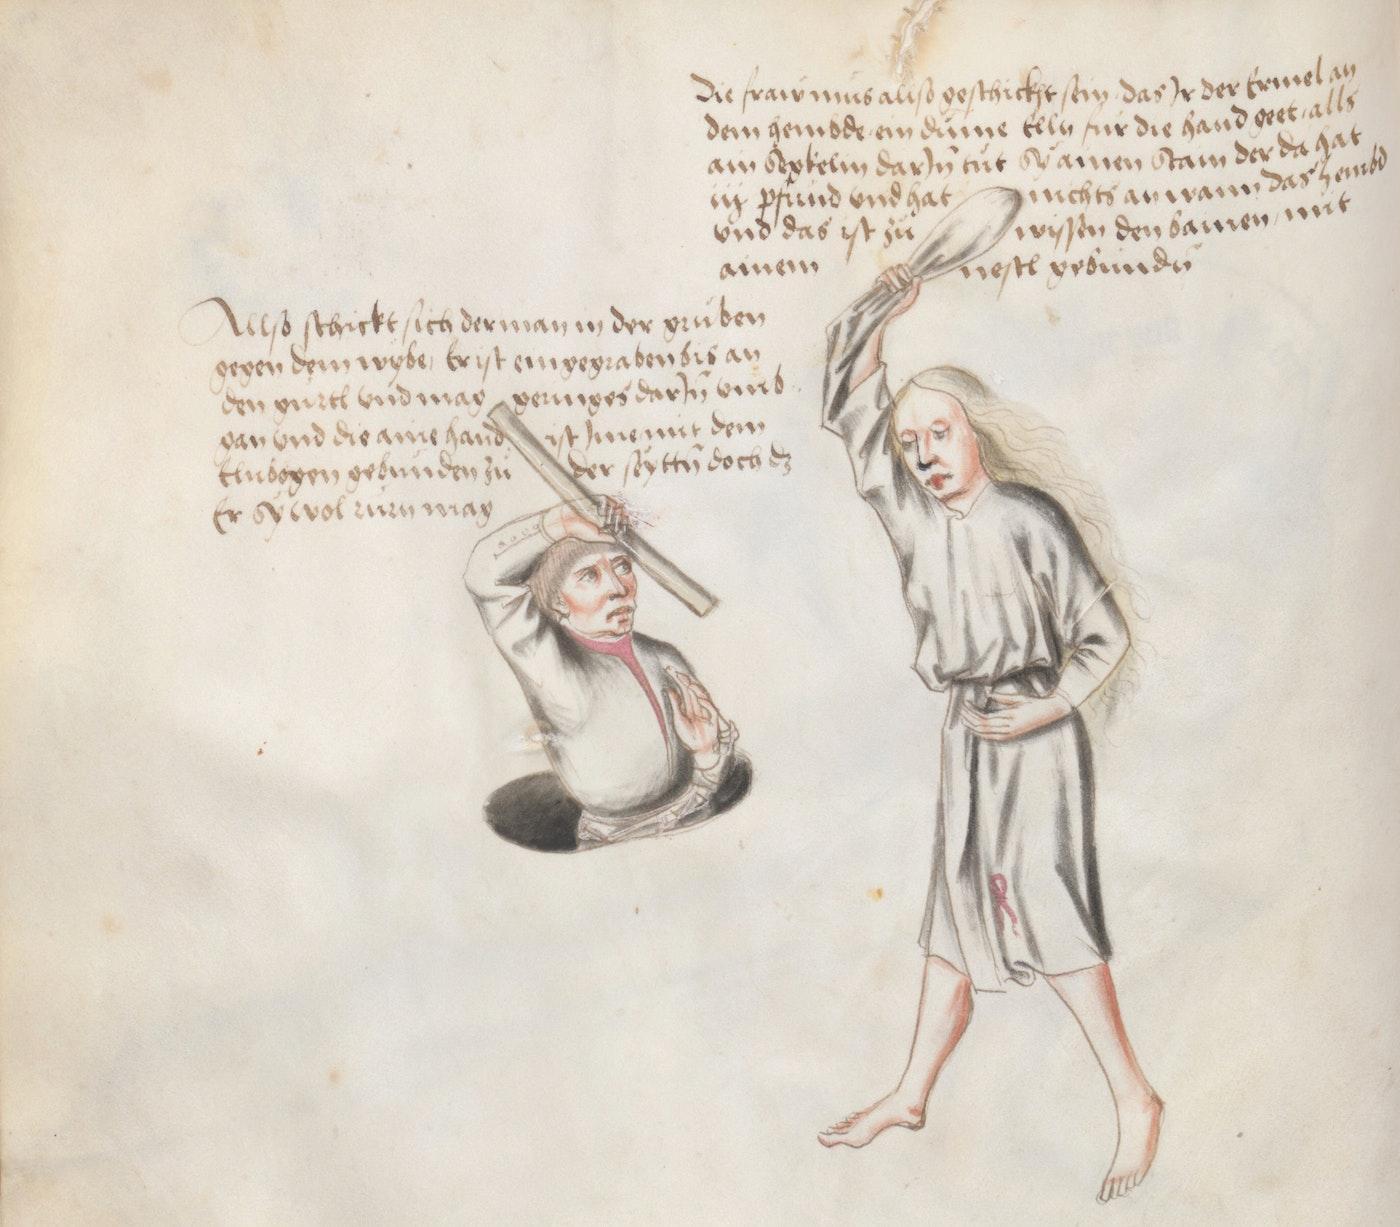 Die fraw mus allso geschickt sein das Jr der Ermel an
dem hembde ein dume Elln fur die hand geet alls
ain Seckelin darJn tut Sy ainen Stain der da hat
iiij pfund und hat nichts an wann das hembd
und das ist zu wissen den bainen mit
ainem nestl gebunden
Allso schickt sich der man in der gruben
gegen dem wybe Er ist eingegraben bis an
den gurtl und mag geringes darJn umb
gan und die aine hand ist Jme mit dem
Elnbogen gebunden zu der seyttn doch dz
Er Sy wol rurn mag